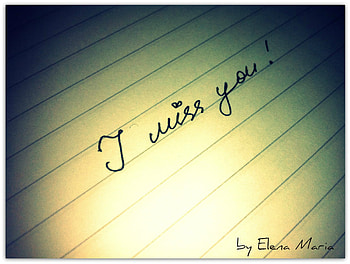 I miss you!
by Elena Maria